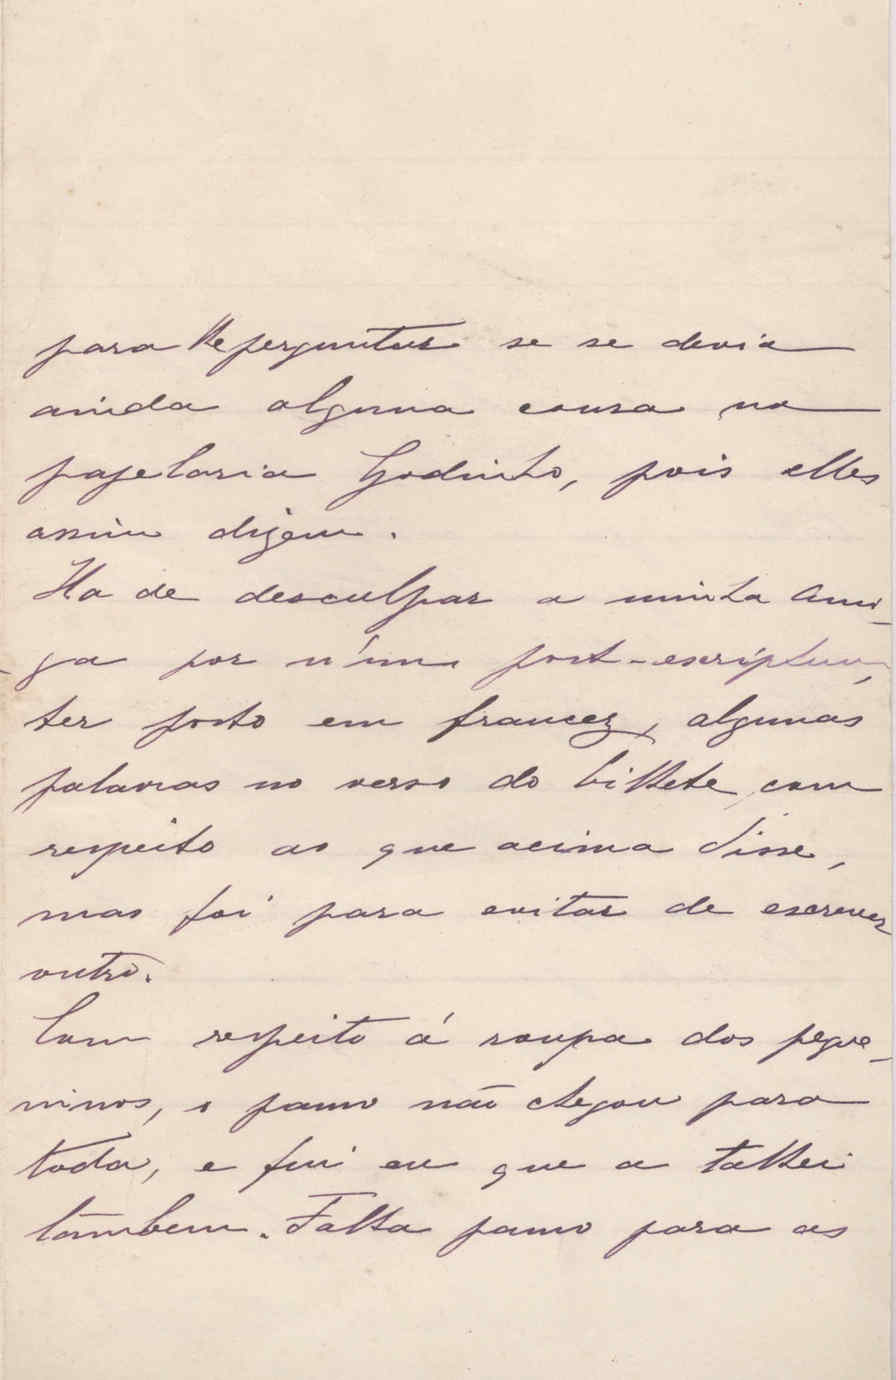 para lhe perguntar se se devia
ainda alguma cousa na
papelaria Godinho, pois elles
assim dizem.
Ha de desculpar a minha Ami-
ga por n'um post-escriptum,
ter posto em francez, algumas
palavras no verso do bilhete, com
respeito ao que acima disse,
mas foi para evitar de escrever
outro.
Com respeito á roupa dos peque-
ninos, o panno não chegou para
toda, e fui eu que a talhei
tambem. Falta panno para as